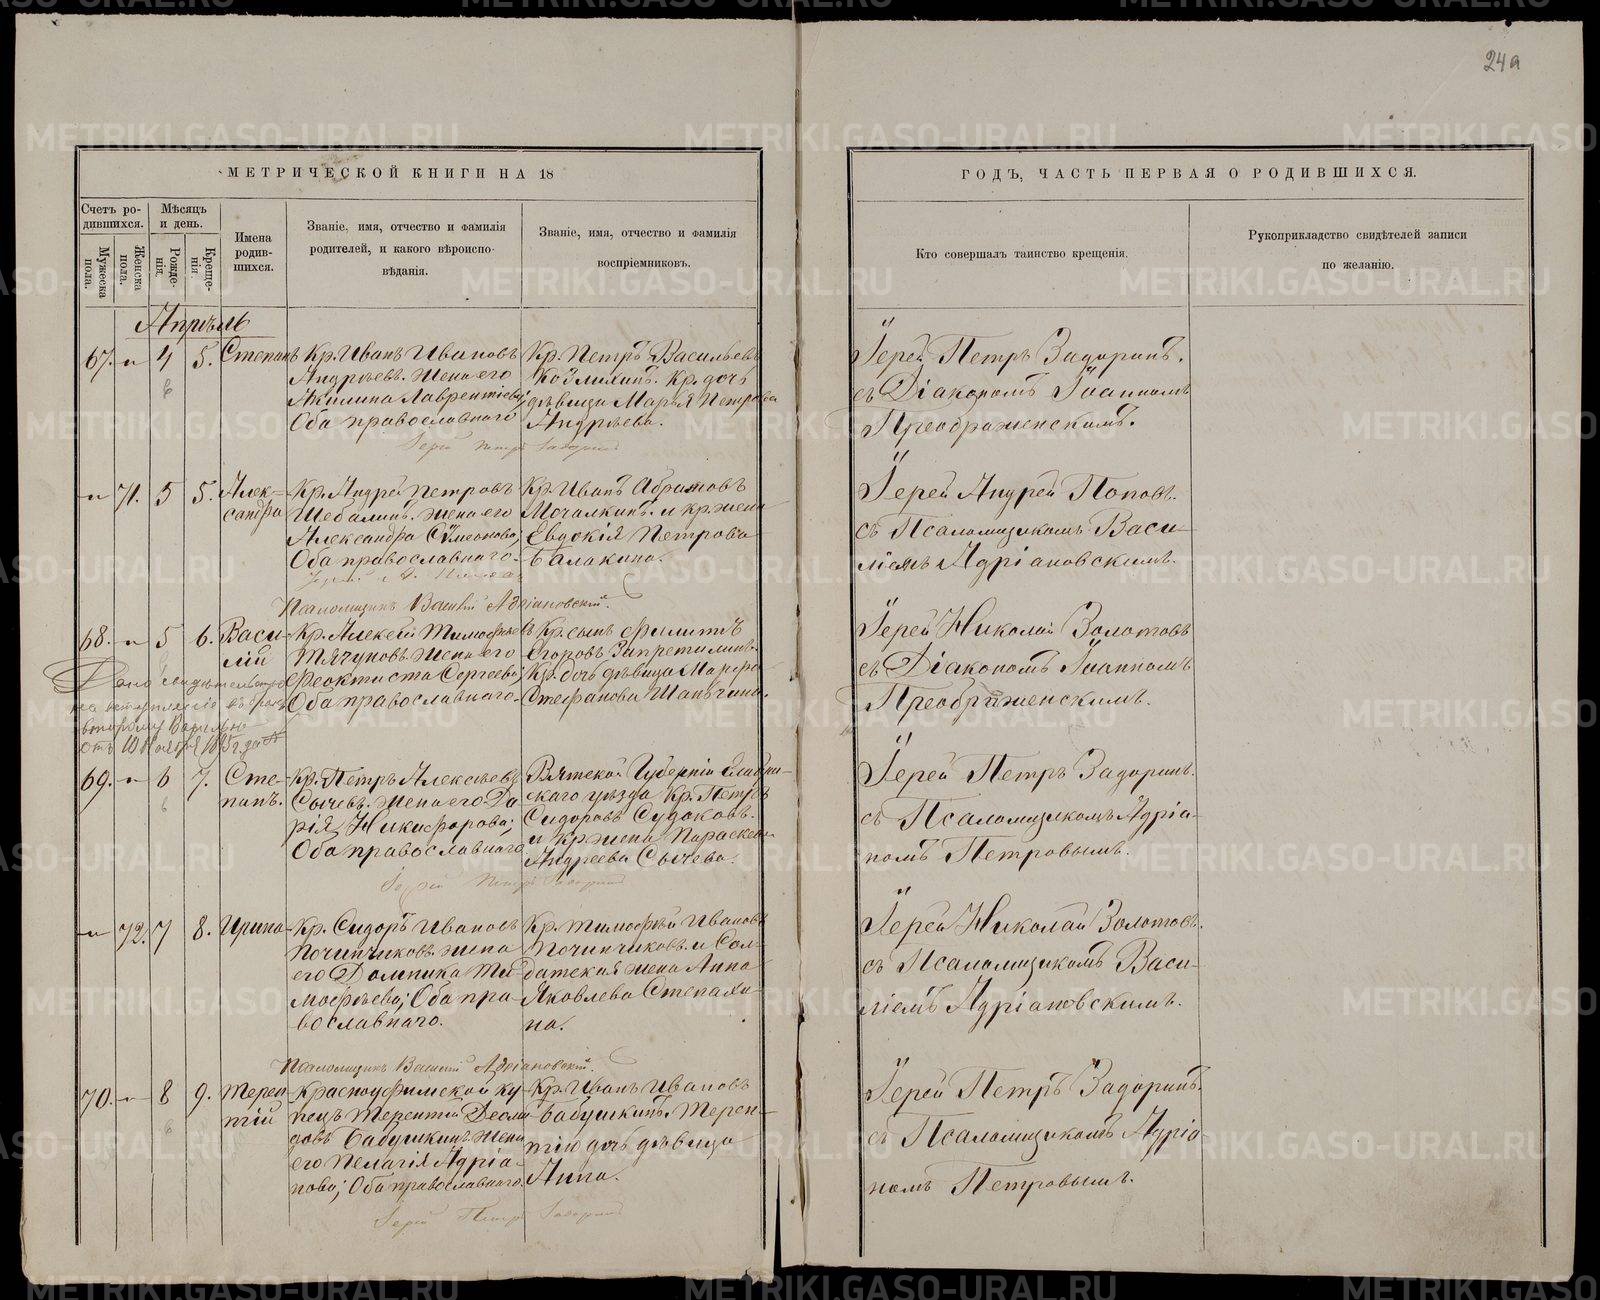 24а
МЕТРИЧЕСКОЙ КНИГИ НА 18
ГОДЪ, ЧАСТЬ ПЕРВАЯ О РОДИВШИХСЯ.
Счетъ ро-
дившихся.
Мужеска
пола.
Женска
пола.
Мѣсяцъ
и день.
Рожде-
нія.
Креще-
нія.
Имена
родив-
шихся.
Званіе, имя, отчество и фамилія
родителей, и какого вѣроиспо-
вѣданія.
Званіе, имя, отчество и фамилія
воспріемниковъ.
Кто совершалъ таинство крещенія.
Рукоприкладство свидѣтелей записи
по желанію.
Апрѣль
67. " 4 5. Степанъ
Кр. Иванъ Ивановъ
Андрѣевъ. жена его
Акилина Лаврентіева;
Оба православнаго
Кр. Петръ Васильевъ
Козлихинъ. Кр. дочь
дѣвица Марья Петрова
Андрѣева.
Іерей Петръ Задоринъ.
съ Діакономъ Іоанномъ
Преображенскимъ.
Іерей Петръ Задоринъ
" 71. 5 5. Алек-
сандра
Кр. Андрей Петровъ
Шебалинъ. жена его
Александра Сѵмеонова;
Оба православнаго.
Кр. Иванъ Абрамовъ
Мочалкинъ. и кр. жена
Евдокія Петрова
Балакина.
Іерей Андрей Поповъ.
съ Псаломщикомъ Васи-
ліемъ Адріановскимъ.
Псаломщикъ Василій Адріановскій.
68. " 5 6. Васи-
лій
Кр. Алексѣй Тимофѣевъ
Тячуновъ. жена его
Феоктиста Сергѣева;
Оба православнаго.
Кр. сынъ Филиппъ
Егоровъ Запретилинъ.
Кр. дочь дѣвица Марфа
Стефанова Шапочина.
Іерей Николай Золотовъ
съ Діакономъ Іоанномъ
Преображенскимъ.
Дано свидѣтельство
на вступленіе въ бракъ
69. " 6 7. Сте-
панъ.
Кр. Петръ Алексѣевъ
Сычевъ. жена его Да
рія Никифорова;
Оба православнаго
Вятской Губерніи
скаго уѣзда Кр. Петръ
Сидоровъ Судоковъ.
и кр. жена Параскева
Андреева Сычева.
Іерей Петръ Задоринъ.
съ Псаломщикомъ Адріа-
номъ Петровымъ.
Іерей Петръ Задоринъ
" 72. 7 8. Ирина
Кр. Сидоръ Ивановъ
Починчиковъ. жена
его Домника Ти-
мофѣева; Оба пра-
вославнаго.
Кр. Тимофѣй Ивановъ
Починчиковъ. и Сол-
датская жена Анна
Яковлева Степахи-
на.
Іерей Николай Золотовъ.
съ Псаломщикомъ Васи-
ліемъ Адріановскимъ.
Псаломщикъ Василій Адріановскій.
70. " 8 9. Терен
тій
Красноуфимской ку-
пецъ Терентій
довъ Бабушкинъ. жена
его Пелагія Адріа-
нова; Оба православнаго.
Кр. Иванъ Ивановъ
Бабушкинъ. Терен-
тію дочь дѣвица
Анна.
Іерей Петръ Задоринъ.
съ Псаломщикомъ Адріа
номъ Петровымъ.
Іерей Петръ Задоринъ
METRIKI.GASO-URAL.RU